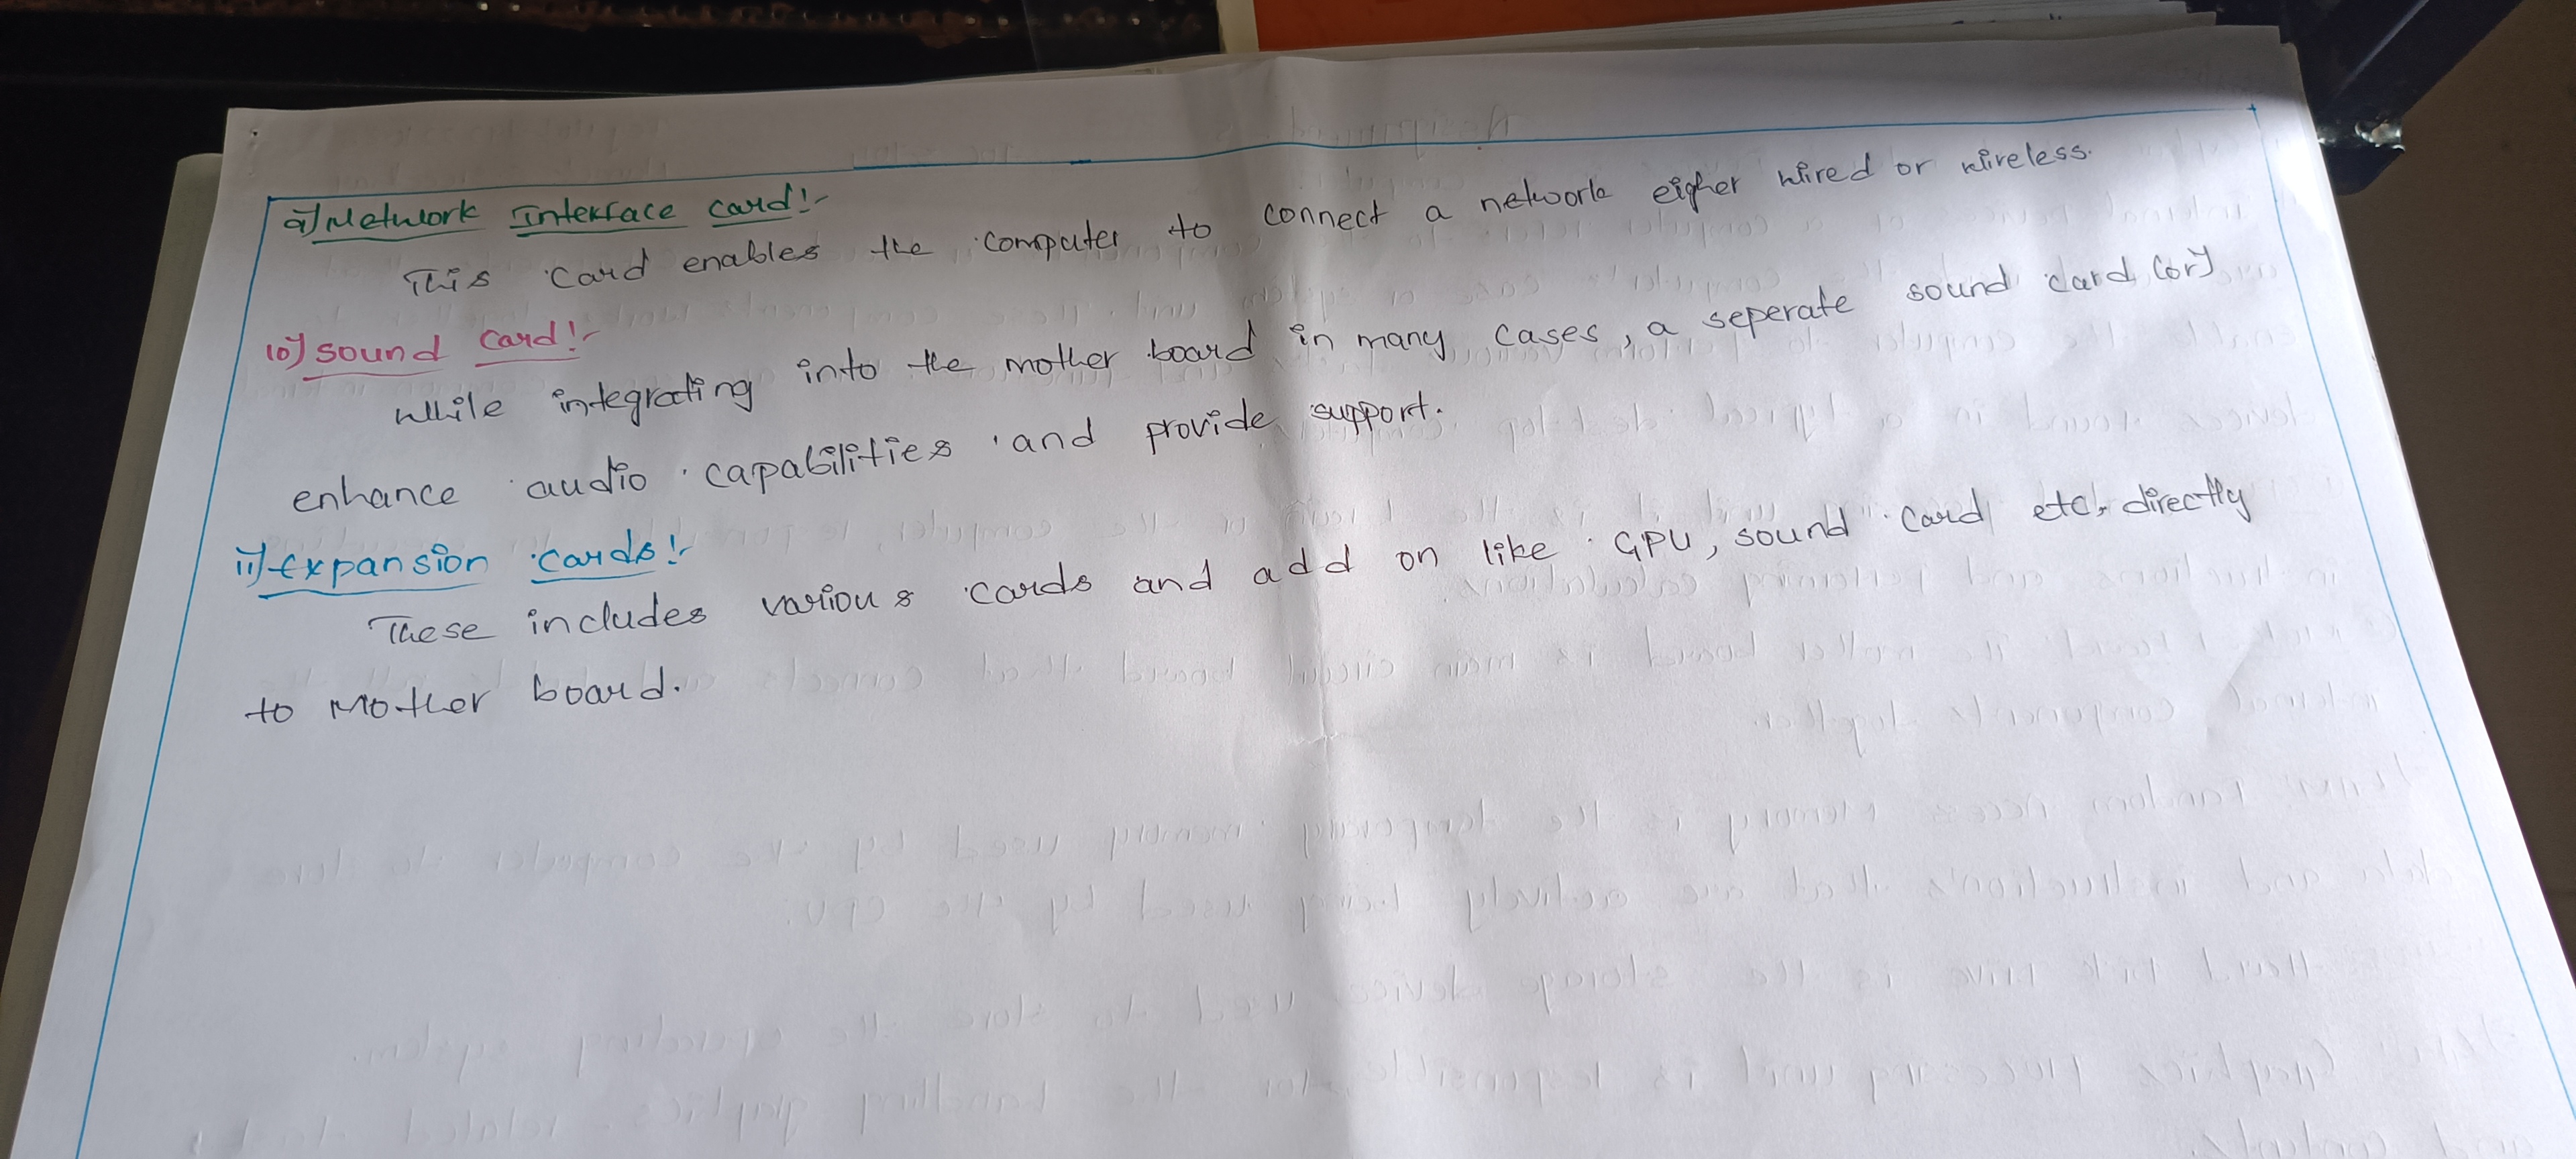 9) Network Interface card:-
This card enables the computer to connect a network eigher wired or wireless.
10) sound card:-
while integrating into the mother board in many cases, a seperate sound card (or)
enhance audio capabilities and provide support.
11) Expansion cards:-
These includes various cards and add on like GPU, sound card etc, directly
to Mother board.